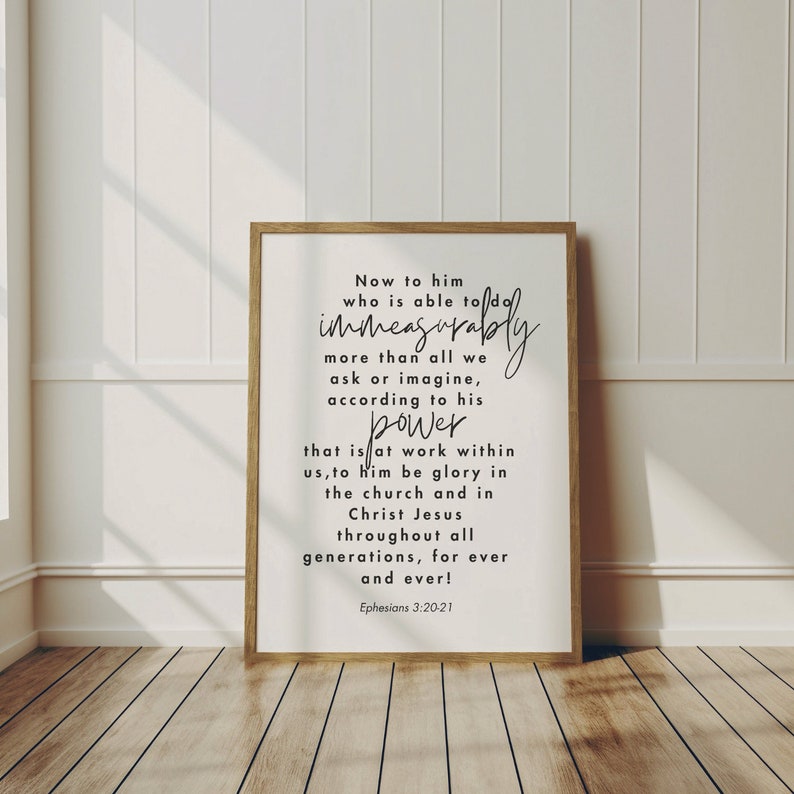 Now to him
who is able to do
immeasurably
more than all we
ask or imagine,
according to his
power
that is at work within
us,to him be glory in
the church and in
Christ Jesus
throughout all
generations, for ever
and ever!
Ephesians 3:20-21